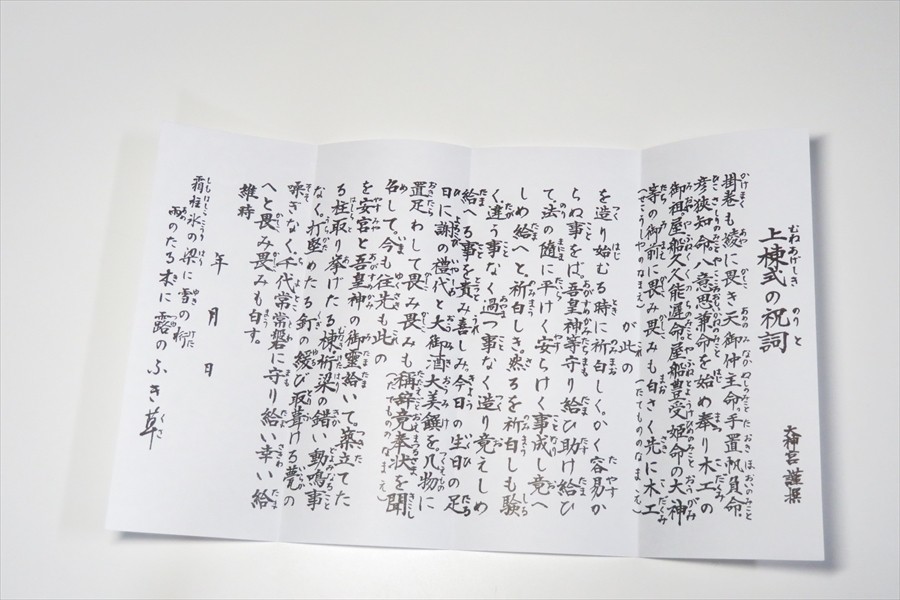 上棟式の祝詞
大神宮 謹撰
掛巻も綾に畏き天御仲主命。手置帆負命
彦狭知命八意思兼命を始め奉り木工の
御祖屋船久久能遅命。屋船豊受姫命の大神
等の御前に畏み畏みも白さく先に木工
(せこうしやのなまえ) が此の (たてもののなまえ)
を造り始むる時に祈白しく。かく容易か
らぬ事をば。吾皇神等守り給ひ助け給ひ
て。法の随に平けく安らけく事成し竟へ
しめ給へと祈白しき。然るを祈白しも験
く違う事なく過つ事なく造り竟えしめ
給へる事を貴み喜しみ。今日の生日の足
日に謝の禮代と大御酒大美饌を。几物に
置足わして畏み畏みも稱辞竟奉状を聞
名して。今も往先も此の (たてもののなまえ)
を安宮と吾皇神の御霊給いて。築立てた
る柱取り挙げたる棟桁梁の錯い動鳴事
なく。打堅めたる釘の緩び取葺ける甍の
噪ぎなく千代常常磐に守り給い幸い給
へと畏み畏みも白す。
維時
年 月 日
霜柱氷の梁に雪の桁
雨のたる木に露のふき草